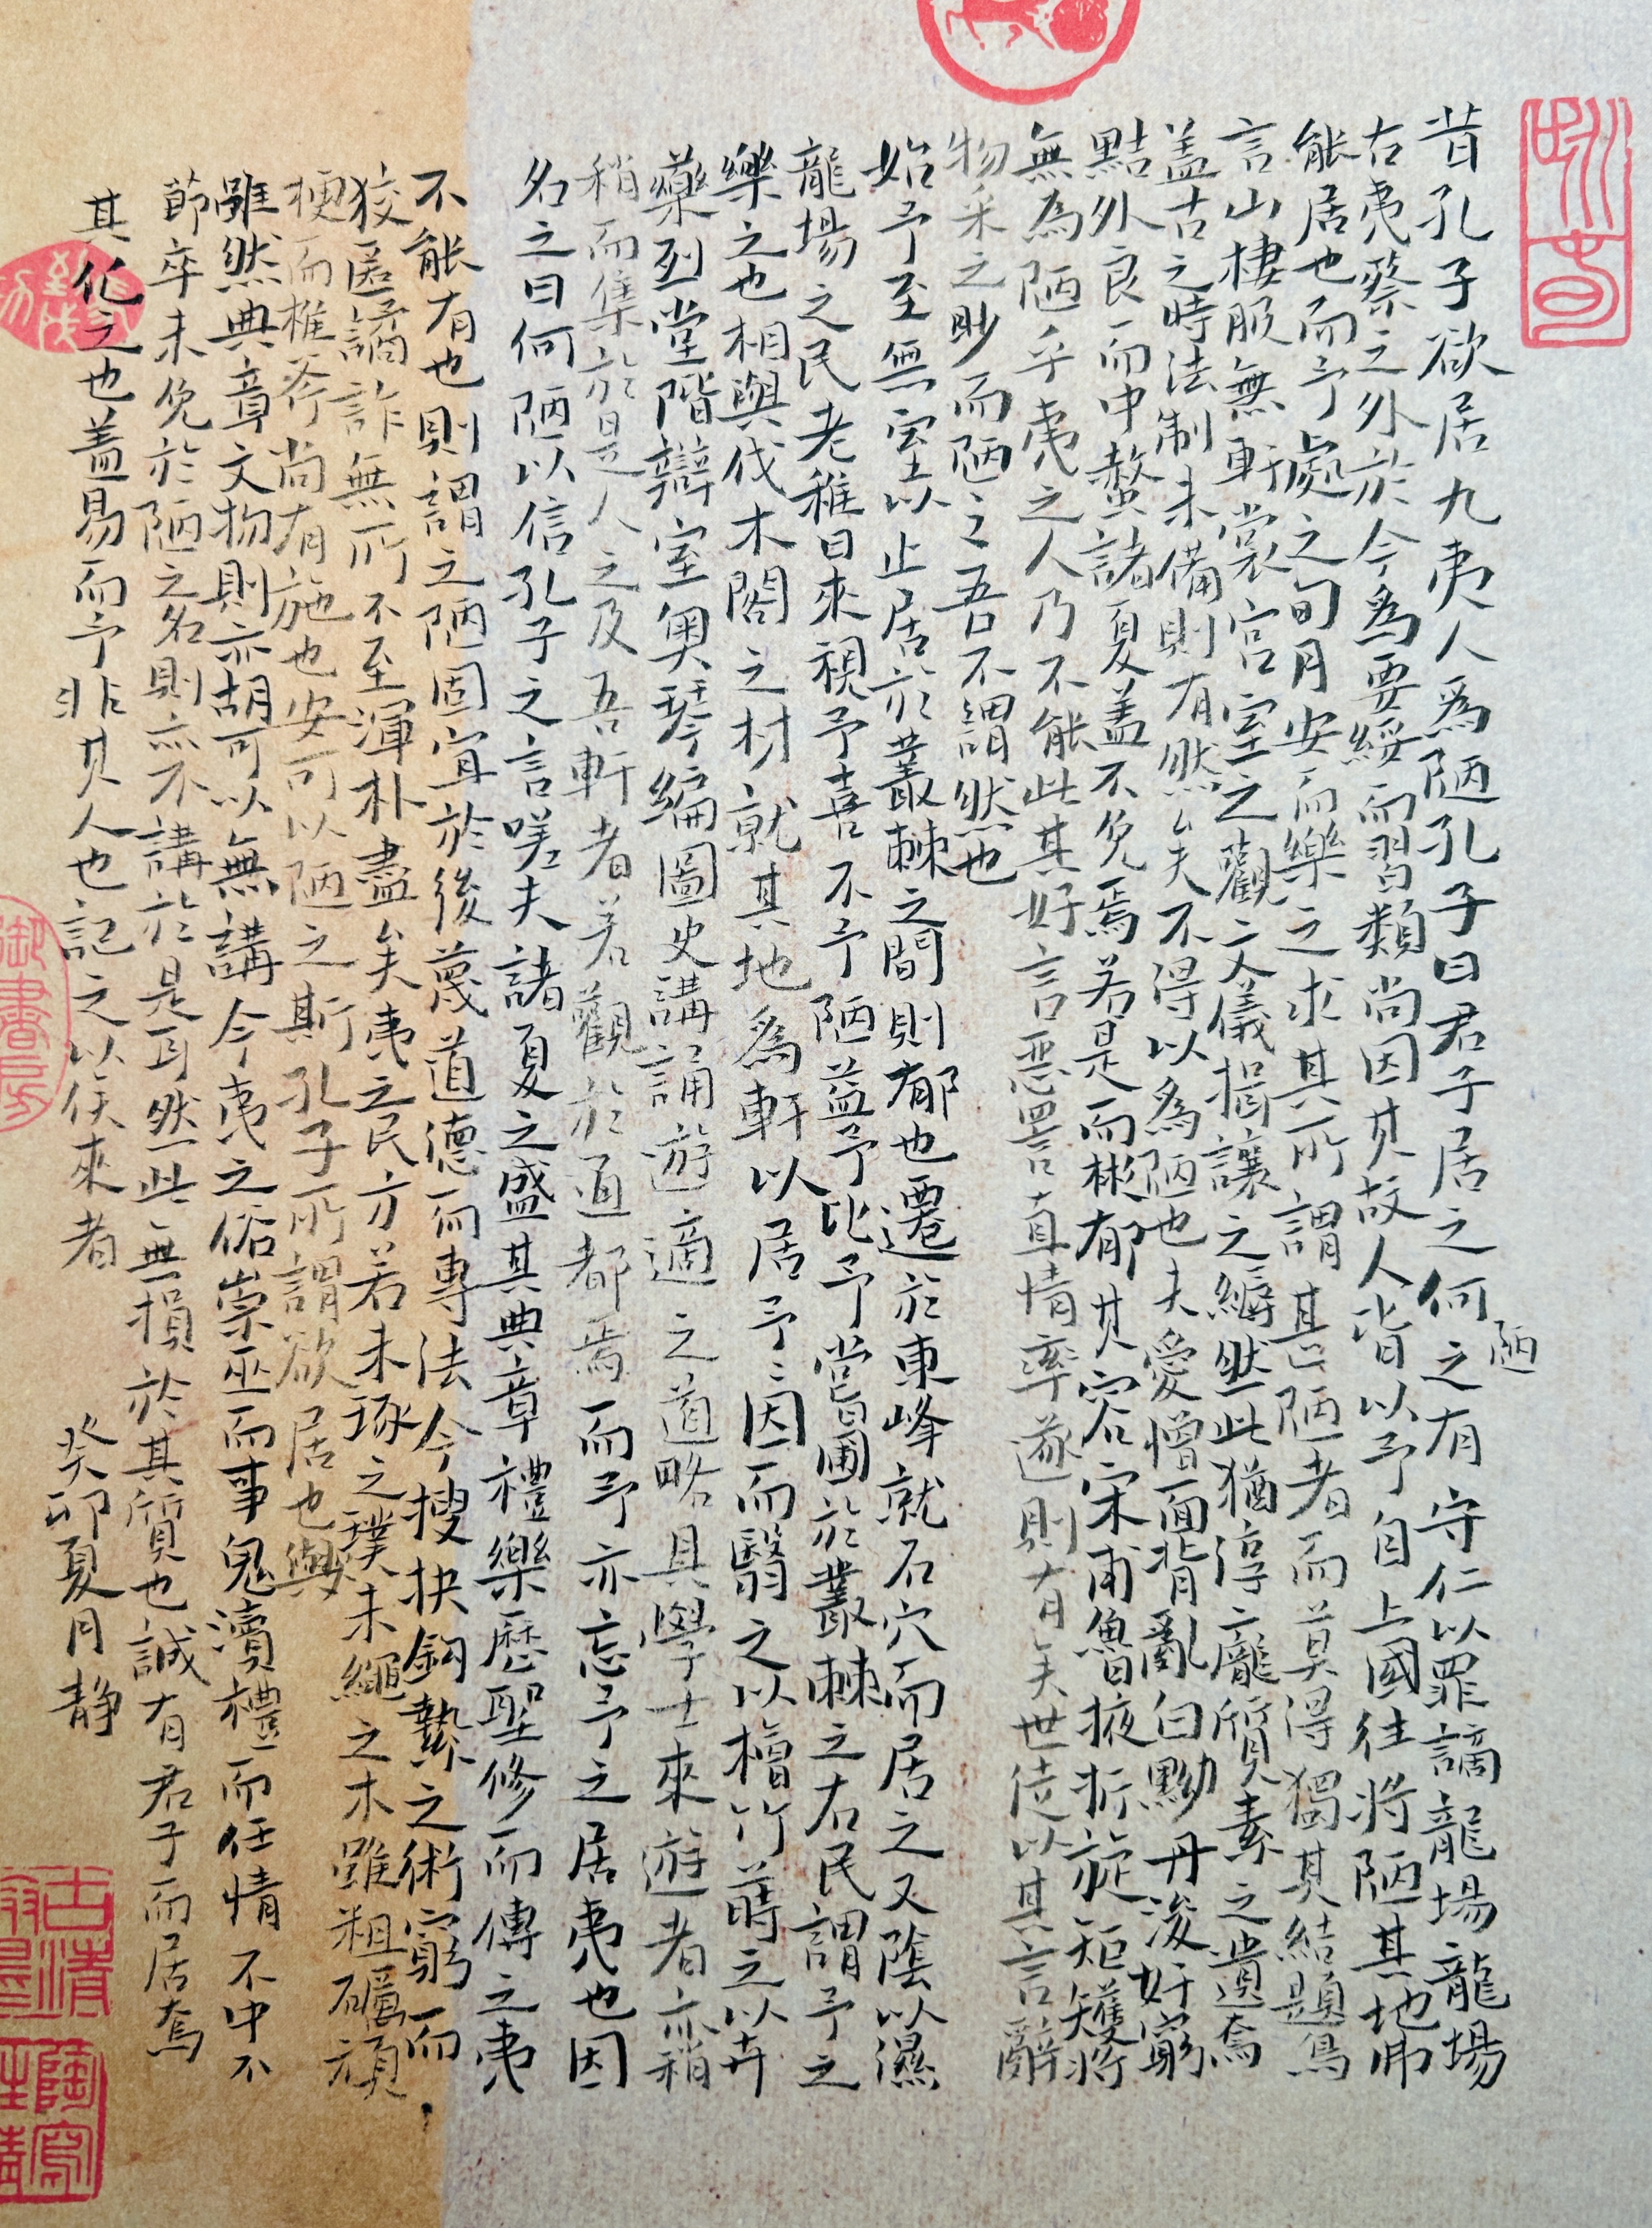 昔孔子欲居九夷人為陋孔子曰君子居之何之有守仁以罪謫龍場龍場
陋
古夷蔡之外於今為要綏而習類尚因其故人皆以予自上國往將陋其地弗
能居也而予處之旬月安而樂之求其所謂甚陋者而莫得獨其結題鳥
言山棲服無軒裳宮室之觀文儀揖讓之縟然此猶淳龐質素之遺焉
蓋古之時法制未備則有然矣不得以為陋也夫愛憎面背亂白黝丹浚奸窮
黠外良而中螫諸夏蓋不免焉若是而彬郁其容宋甫魯掖折旋矩矱將
無為陋乎夷之人乃不能此其好言惡詈直情率遂則有矣世徒以其言辭
物采之眇而陋之吾不謂然也
始予至無室以止居於叢棘之間則郁也遷於東峰就石穴而居之又陰以濕
龍場之民老稚日來視予喜不予陋益予比予嘗圃於叢棘之右民謂予之
樂之也相與伐木閣之材就其地為軒以居予〻因而翳之以檜竹蒔之以卉
藥列堂階辯室奧琴編圖史講誦遊適之道略具學士來遊者亦稍
稍而集於是人之及吾軒者若觀於通都焉而予亦忘予之居夷也因
名之曰何陋以信孔子之言嗟夫諸夏之盛其典章禮樂歷聖修而傳之夷
不能有也則謂之陋固宜於後蔑道德而專法令搜抉鉤縶之術窮而
狡匿譎詐無所不至渾朴盡矣夷之民方若未琢之璞未繩之木雖粗礪頑
梗而椎斧尚有施也安可以陋之斯孔子所謂欲居也與
雖然典章文物則亦胡可以無講今夷之俗崇巫而事鬼瀆禮而任情不中不
節卒未免於陋之名則亦不講於是耳然此無損於其質也誠有君子而居焉
其化之也蓋易而予非其人也記之以俟來者
癸卯夏月靜
御書房